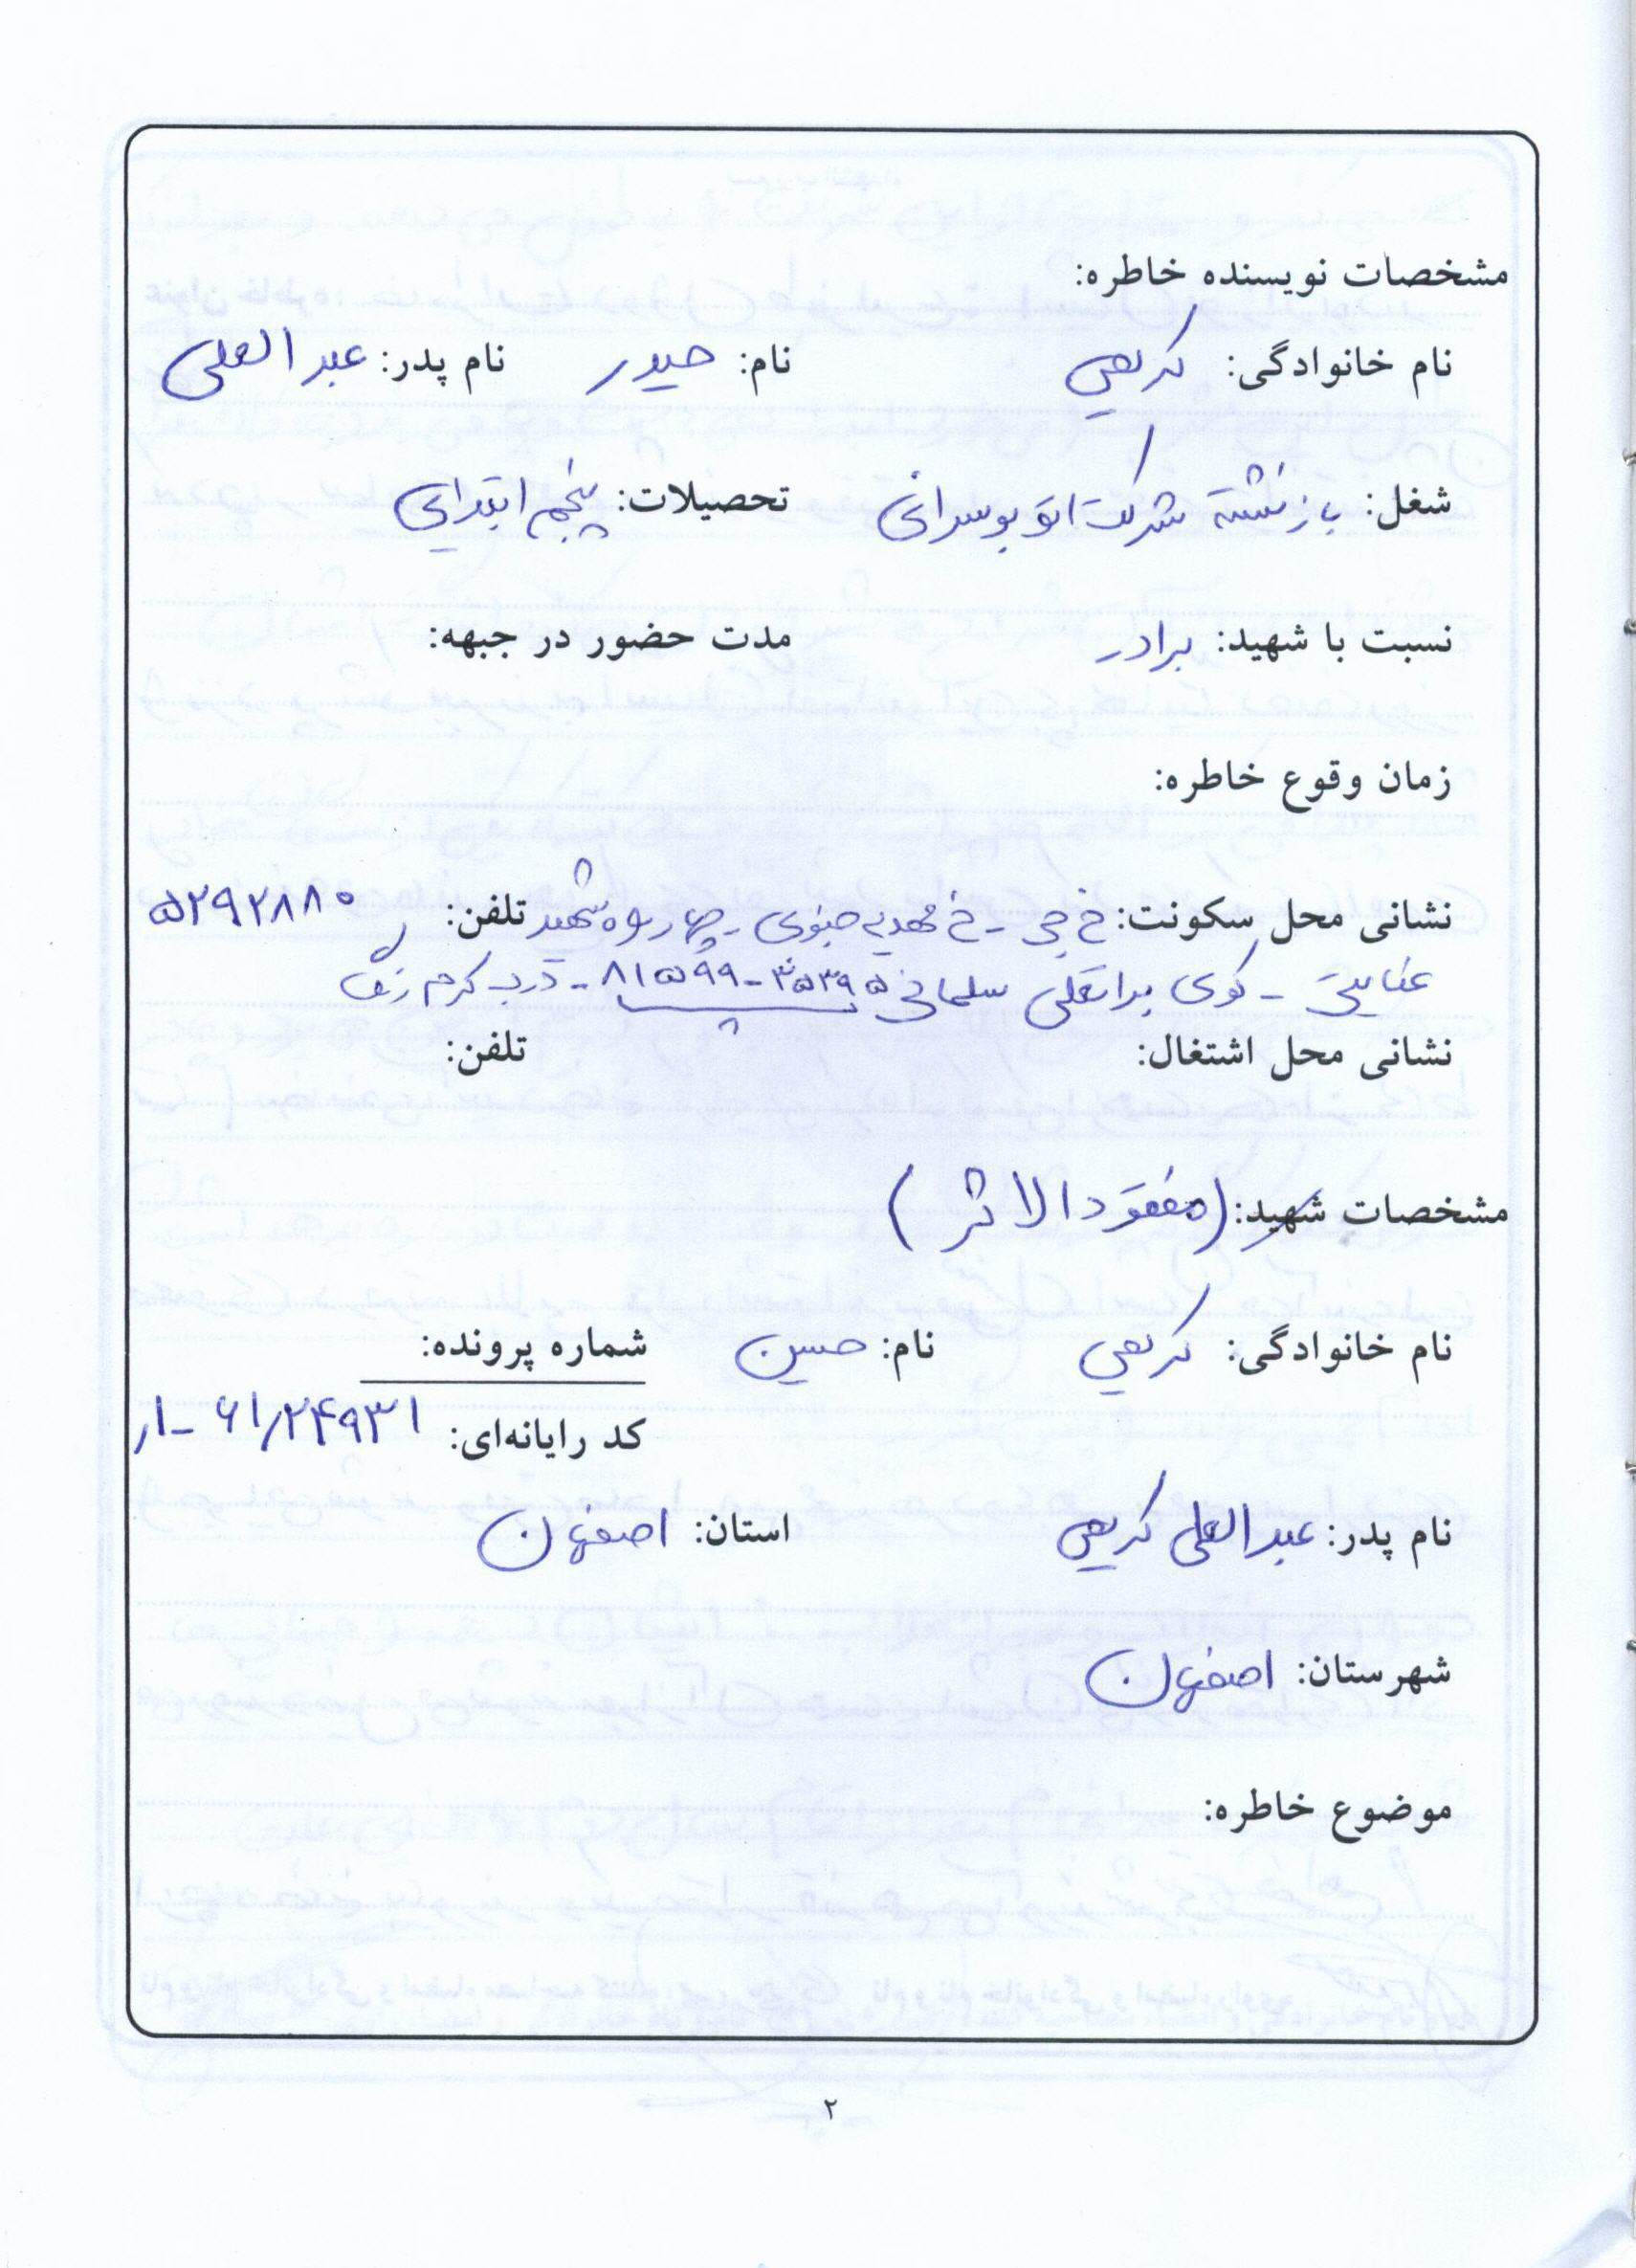 مشخصات نویسنده خاطره:
نام خانوادگی: کریمی نام: حیدر نام پدر: عبدالعلی
شغل: بازنشسته شرکت اتوبوسرانی تحصیلات: پنجم ابتدایی
نسبت با شهید: برادر مدت حضور در جبهه:
زمان وقوع خاطره:
نشانی محل سکونت: خ جی - خ مهدیه جنوبی - چهارراه شهید تلفن: ۵۲۹۲۸۸۰
عنایتی - کوی براتعلی سلمانی ۳۵۳۹۵-۸۱۵۹۹ - درب کرم رنگ
نشانی محل اشتغال: تلفن:
مشخصات شهید: (مفقودالاثر)
نام خانوادگی: کریمی نام: حسین شماره پرونده:
کد رایانه‌ای: ۶۱/۲۴۹۳۱ -۱/
نام پدر: عبدالعلی کریمی استان: اصفهان
شهرستان: اصفهان
موضوع خاطره:
۲